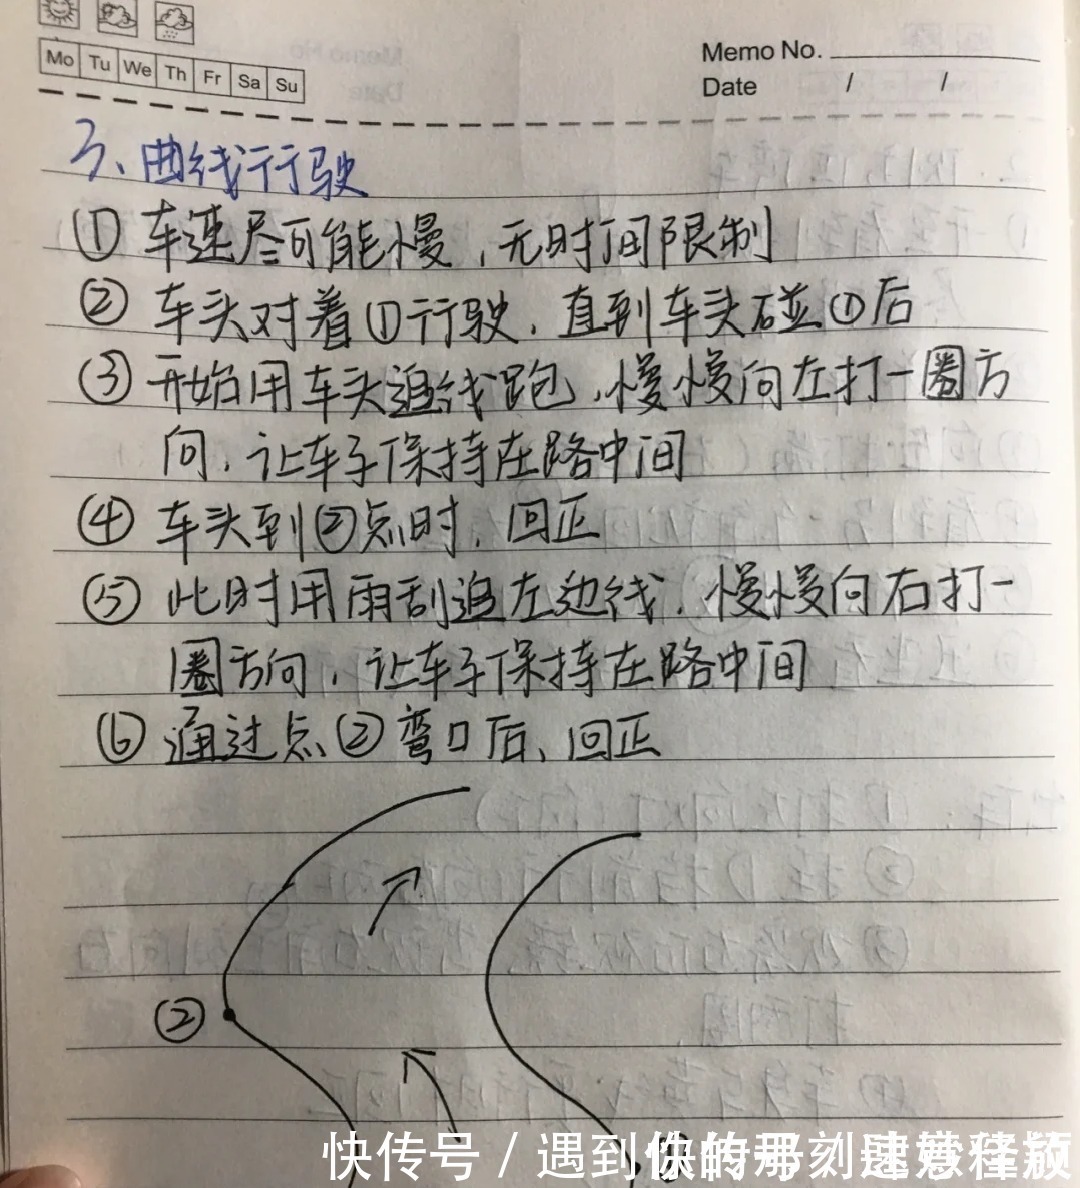 Mo Tu We Th Fr Sa Su
Memo No.
Date / /
3、曲线行驶
① 车速尽可能慢，无时间限制
② 车头对着①行驶，直到车头碰①后
③ 开始用车头追线跑，慢慢向左打一圈方
向，让车子保持在路中间
④ 车头到②点时，回正
⑤ 此时用雨刮追左边线，慢慢向右打一
圈方向，让车子保持在路中间
⑥ 通过点②弯口后、回正
②
快传号 / 遇到